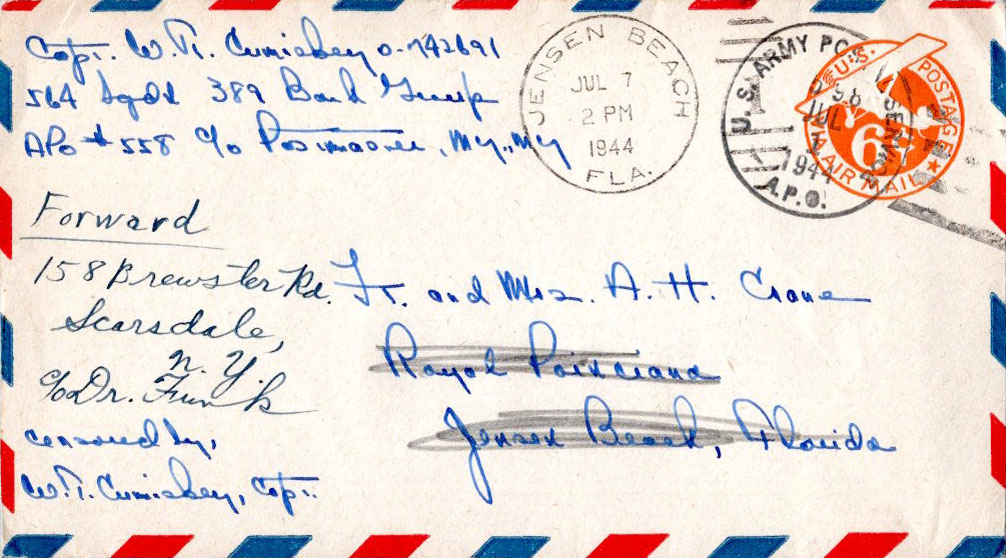 Capt. W. R. Cumiskey O-742691
564 Sqdn 389 Bomb Group
APO # 558 c/o Postmaster, N.Y., N.Y.
JENSEN BEACH
JUL 7
2 PM
1944
FLA.
U.S. ARMY POSTAL SERVICE
JUL
1944
A.P.O.
U.S. POSTAGE
6¢
AIR MAIL
Forward
158 Brewster Rd.
Scarsdale,
N. Y.
c/o Dr. Funk
Lt. and Mrs. A. H. Crane
Royal Poinciana
Jensen Beach, Florida
censored by,
W. R. Cumiskey, Capt.